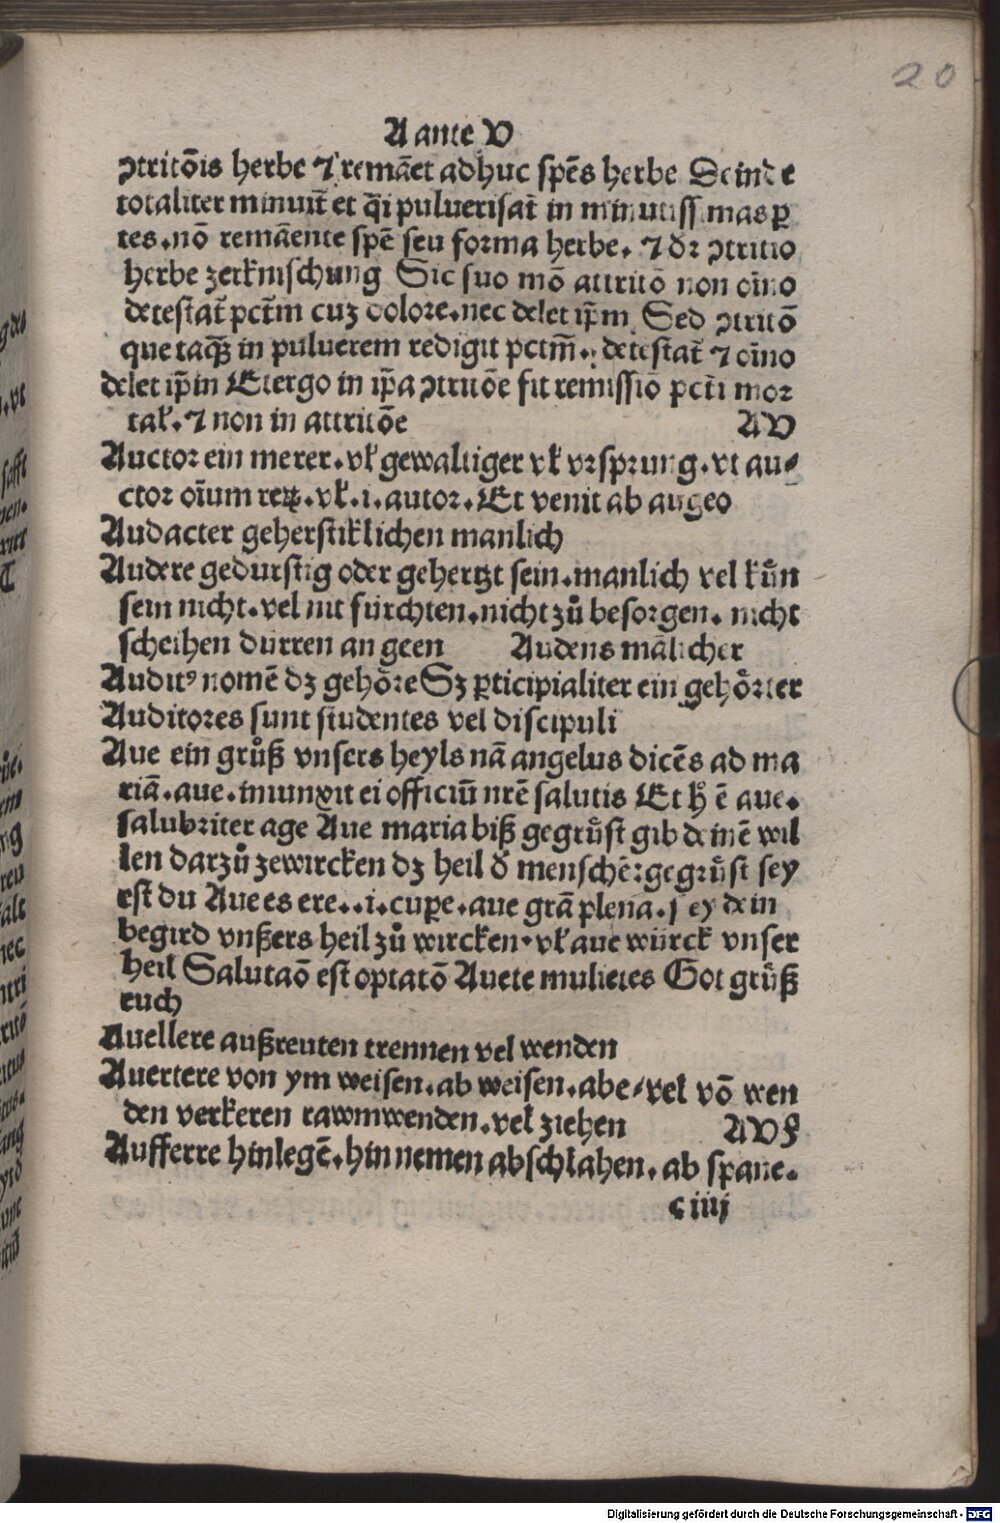 20
A ante V
ꝯtritōis herbe ⁊ remāet adhuc spēs herbe Deinde
totaliter minuit̄ et q̄i puluerisat̄ in minutissimas ꝑ
tes.nō remāente spē seu forma herbe. ⁊ dr̄ ꝯtritio
herbe zerknischung Sic suo mō attritō non oīno
detestat̄ pctm̄ cuꝫ dolore.nec delet ip̄m Sed ꝯtritō
que taqꝫ in puluerem redigit pctm̄. detestat̄ ⁊ oīno
delet ip̄m Et ergo in ip̄a ꝯtritōe fit remissio pcti mor
tal̕. ⁊ non in attritōe AV
Auctor ein merer.vl̕ gewaltiger vl̕ vrsprung.vt au⸗
ctor oīum reꝝ.vl̕.i.autor.Et venit ab augeo
Audacter geherstiklichen manlich
Audere gedurstig oder gehertzt sein.manlich vel kuͤn
sein nicht.vel nit fürchten.nicht zů besorgen. nicht
scheihen dürren an geen Audens mālicher
Auditꝰ nomē dꝫ gehoͤre Sꝫ ꝑticipialiter ein gehoͤrter
Auditores sunt studentes vel discipuli
Aue ein gruͤß vnsers heyls nā angelus dicēs ad ma
riā.aue.inunxit ei officiū nrē salutis Et h̄ ē aue.
salubriter age Aue maria biß gegruͤst gib deinē wil
len darzů zewircken dꝫ heil d̕ menschē:gegruͤst sey
est du Aue es ere..i.cupe.aue grā plena.sey dein
begird vnßers heil zů wircken.vl̕ aue würck vnser
heil Salutaō est optatō Auete mulieres Got gruͤß
euch
Auellere außreuten trennen vel wenden
Auertere von ym weisen.ab weisen.abe⸗vel vō wen
den verkeren rawmwenden.vel ziehen AVF
Aufferre hinlegē.hin nemen abschlahen. ab spane.
c iiij
Digitalisierung gefördert durch die Deutsche Forschungsgemeinschaft - DFG